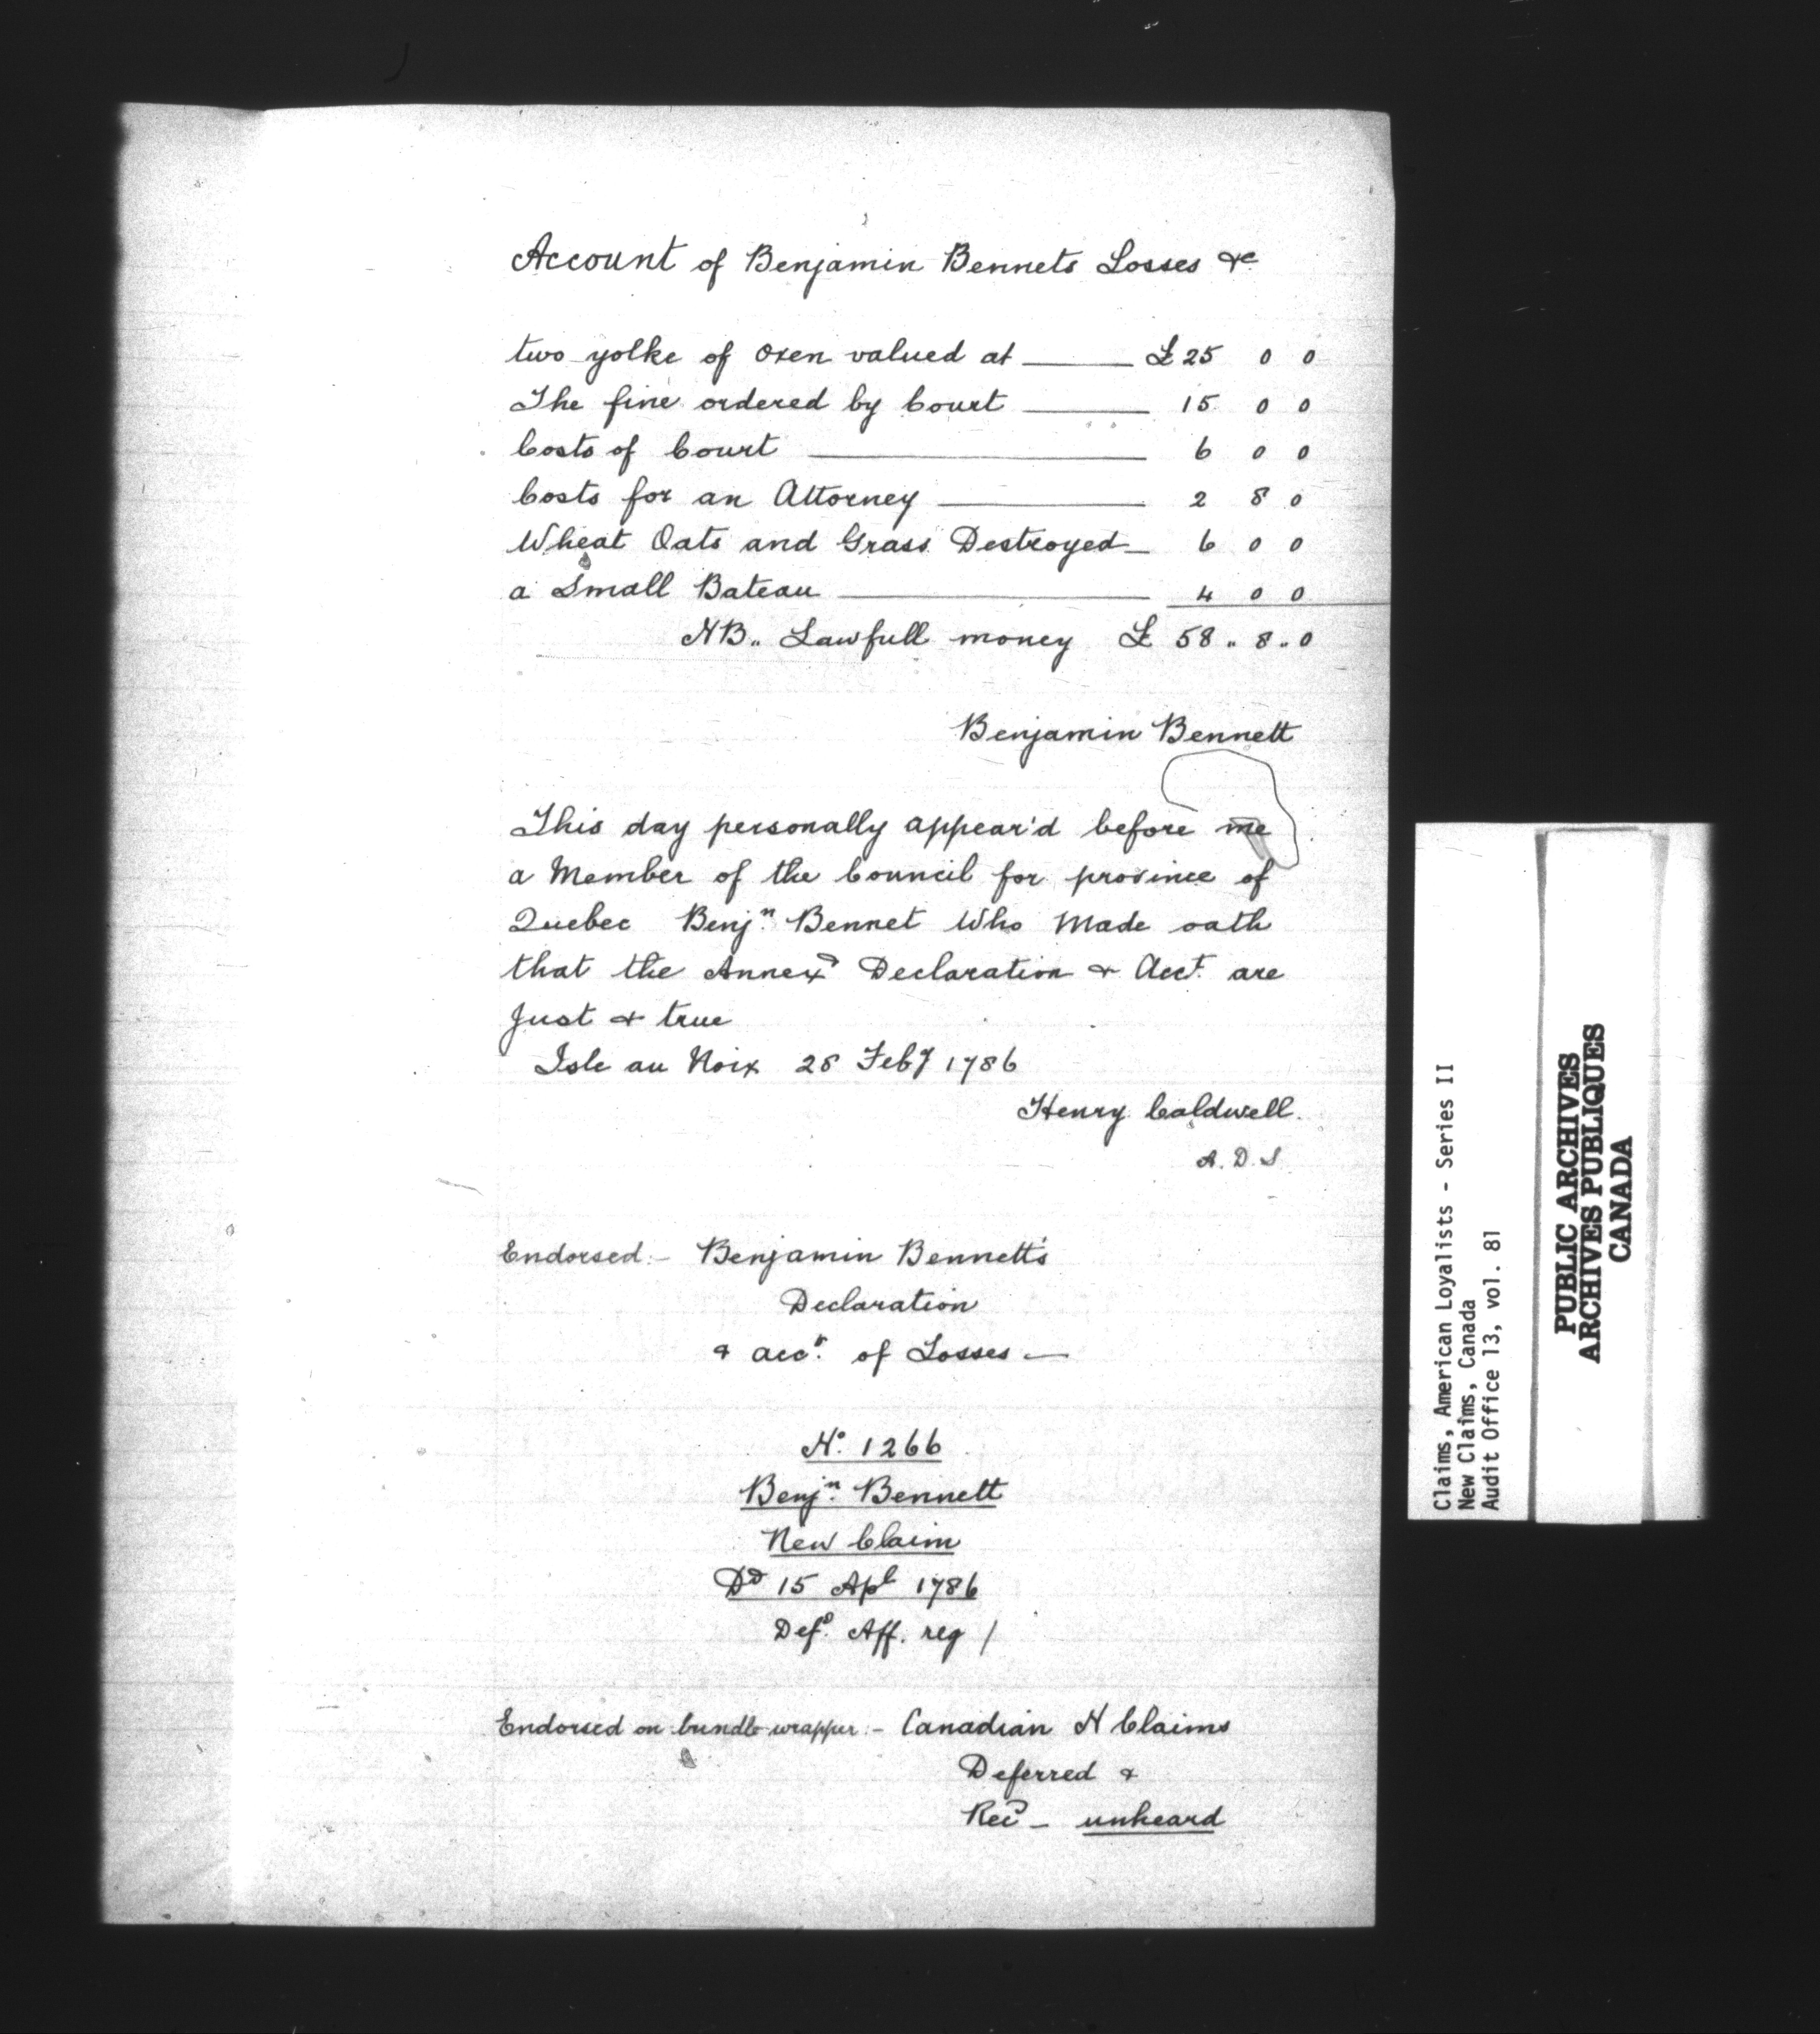 Account of Benjamin Bennets Losses &c
two yolke of oxen valued at ——— £ 25 0 0
The fine ordered by Court ——— 15 0 0
Costs of Court ——— 6 0 0
Costs for an Attorney ——— 2 8 0
Wheat Oats and Grass Destroyed — 6 0 0
a Small Bateau ——— 4 0 0
NB.. Lawfull money £ 58 .. 8 .. 0
Benjamin Bennett
This day personally appear'd before me
a Member of the Council for province of
Quebec Benjn. Bennet Who Made oath
that the Annexd Declaration & Acct. are
Just & true
Isle au Noix 28 Feby 1786
Henry Caldwell.
A. D. S.
Endorsed:- Benjamin Bennett's
Declaration
& acct. of Losses —
No. 1266
Benjn. Bennett
New Claim
Dd 15 Apl 1786
Defd. Aff. reg /
Endorsed on bundle wrapper:- Canadian N Claims
Deferred &
Recd — unheard
Claims, American Loyalists - Series II
New Claims, Canada
Audit Office 13, vol. 81
PUBLIC ARCHIVES
ARCHIVES PUBLIQUES
CANADA